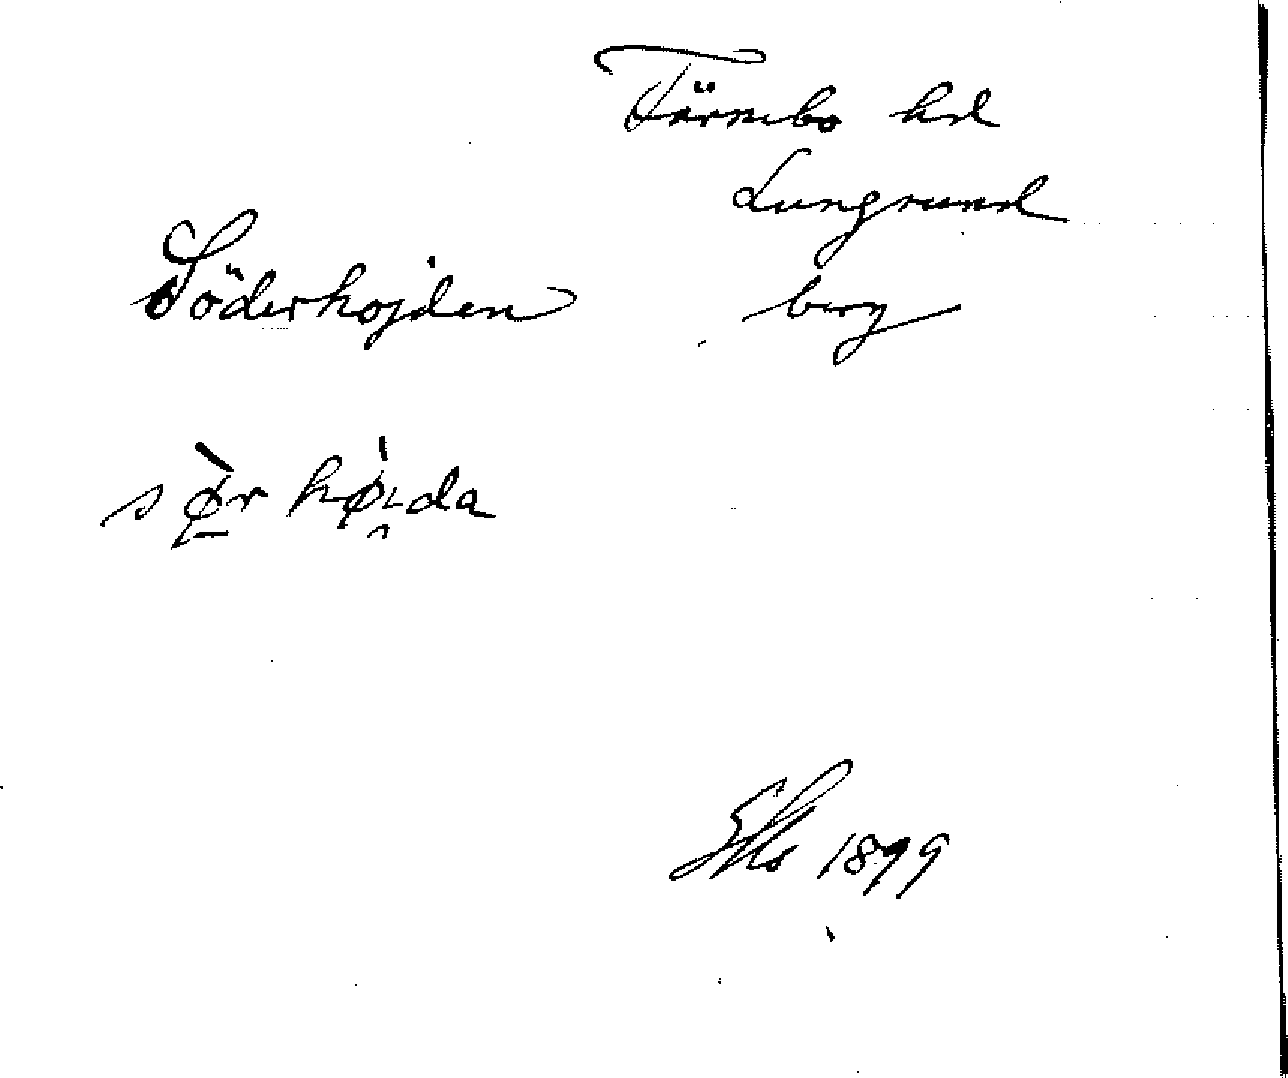 Färnebo hd
Lungsund
Söderhöjden
berg
sør høida
1899